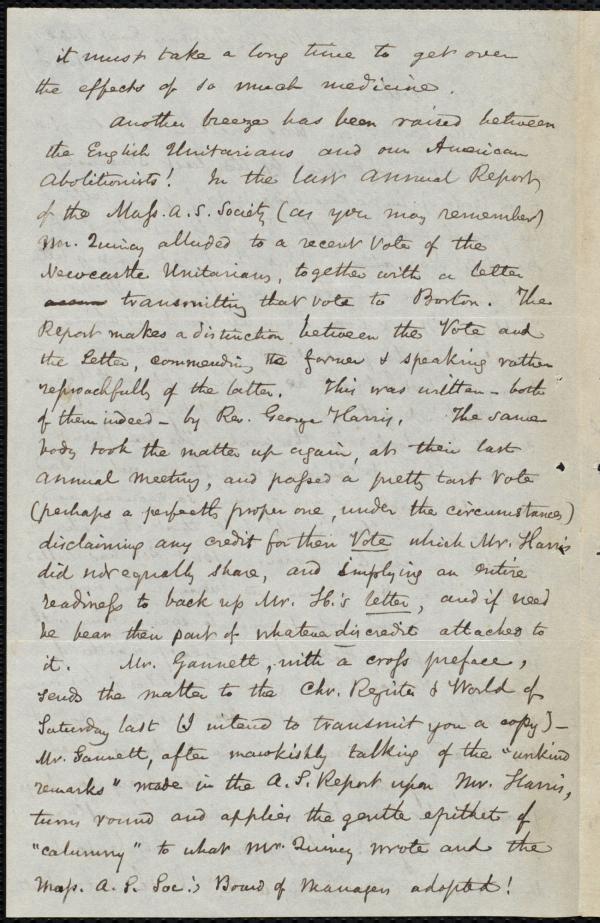 it must take a long time to get over
the effects of so much medicine.
Another breeze has been raised between
the English Unitarians and our American
Abolitionists! In the last Annual Report
of the Mass. A. S. Society (as you may remember)
Mr. Quincy alluded to a recent Vote of the
Newcastle Unitarians, together with a letter
transmitting that vote to Boston. The
Report makes a distinction between the Vote and
the Letter, commending the former & speaking rather
reproachfully of the latter. This was written - both
of them indeed - by Rev. George Harris. The same
body took the matter up again, at their last
annual meeting, and passed a pretty tart Vote
(perhaps a perfectly proper one, under the circumstances)
disclaiming any credit for their Vote which Mr. Harris
did not equally share, and implying an entire
readiness to back up Mr. H.'s letter, and if need
be bear their part of whatever discredit attached to
it. Mr. Gannett, with a cross preface,
sends the matter to the Chr. Register & World of
Saturday last (I intend to transmit you a copy) -
Mr. Gannett, after mawkishly talking of the "unkind
remarks" made in the A. S. Report upon Mr. Harris,
turns round and applies the gentle epithet of
"calumny" to what Mr. Quincy wrote and the
Mass. A. S. Soc.'s Board of Managers adopted!